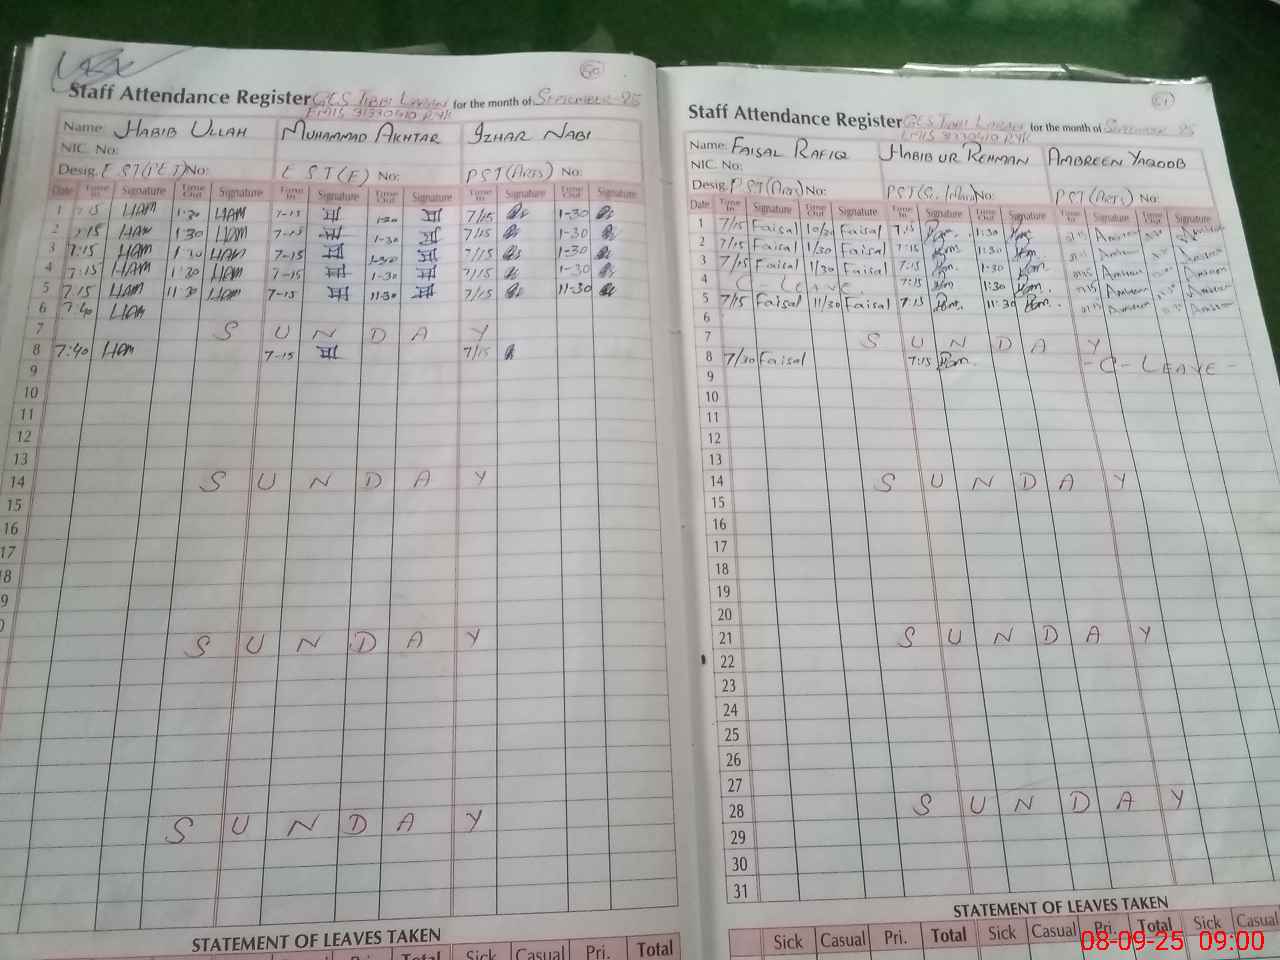 60
Staff Attendance Register GES TIBBI LARRAN for the month of SEPTEMBER-25
EMIS 31330410 RYK
Name: HABIB ULLAH MUHAMMAD AKHTAR IZHAR NABI
NIC. No:
Desig. EST(PET) No: EST(F) No: PST(ARTS) No:
Date Time In Signature Time Out Signature Time In Signature Time Out Signature Time In Signature Time Out Signature
1 7:15 HAM 1:30 HAM 7-15 1-30 7/15 1-30
2 7:15 HAM 1:30 HAM 7-15 1-30 7/15 1-30
3 7:15 HAM 1:30 HAM 7-15 1-30 7/15 1-30
4 7:15 HAM 1:30 HAM 7-15 1-30 7/15 1-30
5 7:15 HAM 11:30 HAM 7-15 11-30 7/15 11-30
6 7:40 HAM
7 SUNDAY
8 7:40 HAM 7-15 7/15
9
10
11
12
13
14 SUNDAY
15
16
17
18
9
0
SUNDAY
SUNDAY
STATEMENT OF LEAVES TAKEN
Total Sick Casual Pri. Total
61
Staff Attendance Register GES TIBBI LARRAN for the month of SEPTEMBER 25
EMIS 31330410 RYK
Name: FAISAL RAFIQ HABIB UR REHMAN AMBREEN YAQOOB
NIC. No:
Desig. PST(ARTS) No: PST(S. No: PST(ARTS) No:
Date Time In Signature Time Out Signature Time In Signature Time Out Signature Time In Signature Time Out Signature
1 7/15 Faisal 10/30 Faisal 7:15 1:30
2 7/15 Faisal 1/30 Faisal 7:15 1:30
3 7/15 Faisal 1/30 Faisal 7:15 1-30
4 C-Leave 7:15 1:30
5 7/15 Faisal 11/30 Faisal 7:15 11:30
6
7 SUNDAY
8 7/30 Faisal 7:15 -C-LEAVE-
9
10
11
12
13
14 SUNDAY
15
16
17
18
19
20
21 SUNDAY
22
23
24
25
26
27
28 SUNDAY
29
30
31
STATEMENT OF LEAVES TAKEN
Sick Casual Pri. Total Sick Casual Pri. Total Sick Casual
08-09-25 09:00